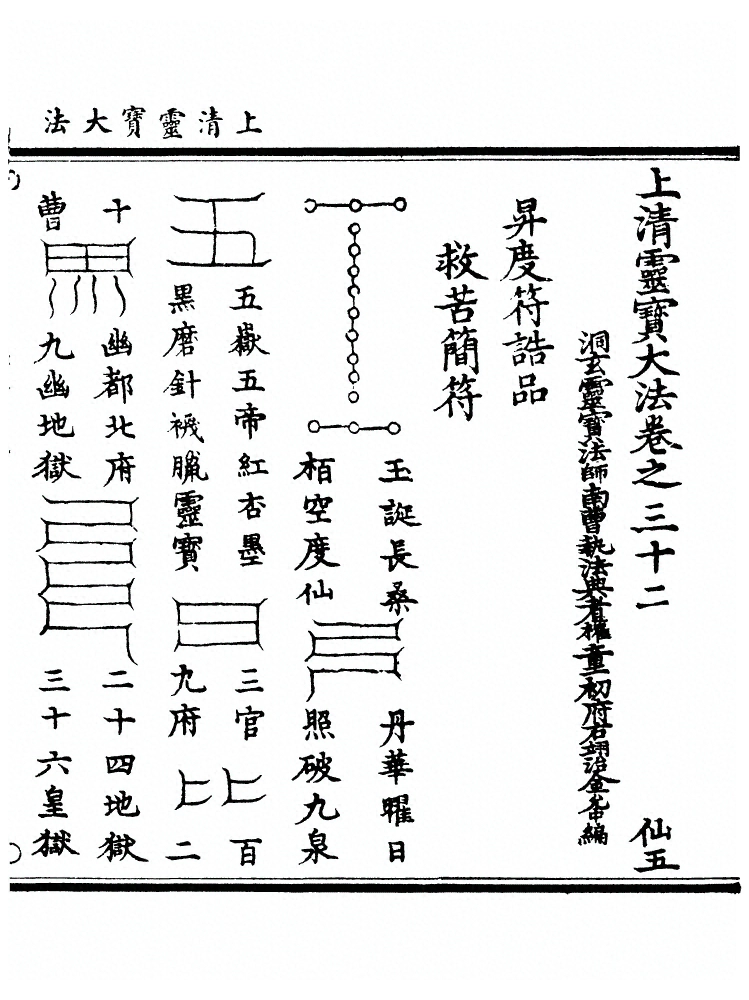 上清靈寶大法
上清靈寶大法卷之三十二 仙五
洞玄靈寶法師南曹執法典者權童初府右翊治金允中編
昇度符誥品
救苦簡符
玉誕長桑
栢空度仙
丹華曜日
照破九泉
五嶽五帝紅杏墨
黑磨針襪臘靈寶
三官
九府
百
二
十
曹
幽都北府
九幽地獄
二十四地獄
三十六皇獄